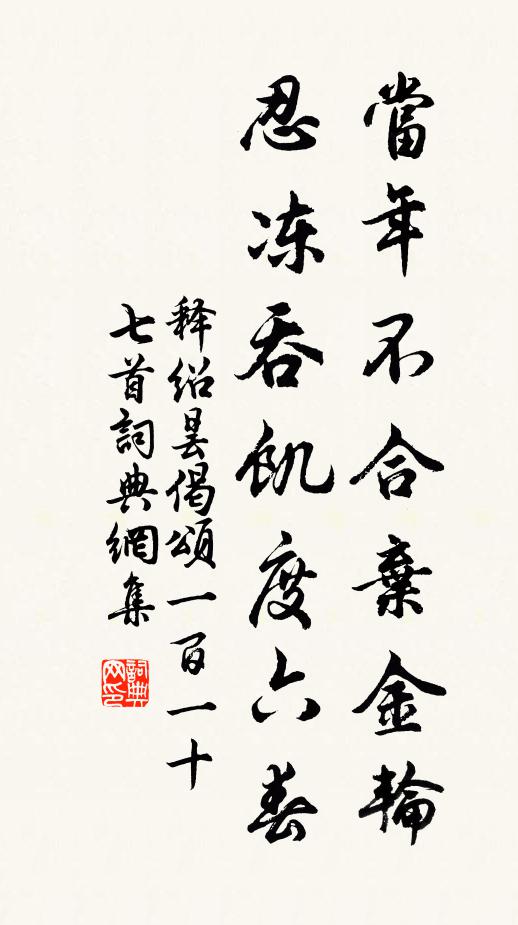 當年不合棄金輪
忍冻吞飢度六春
释绍昙偈頌一百一十
七首詞典網集
詞典网印